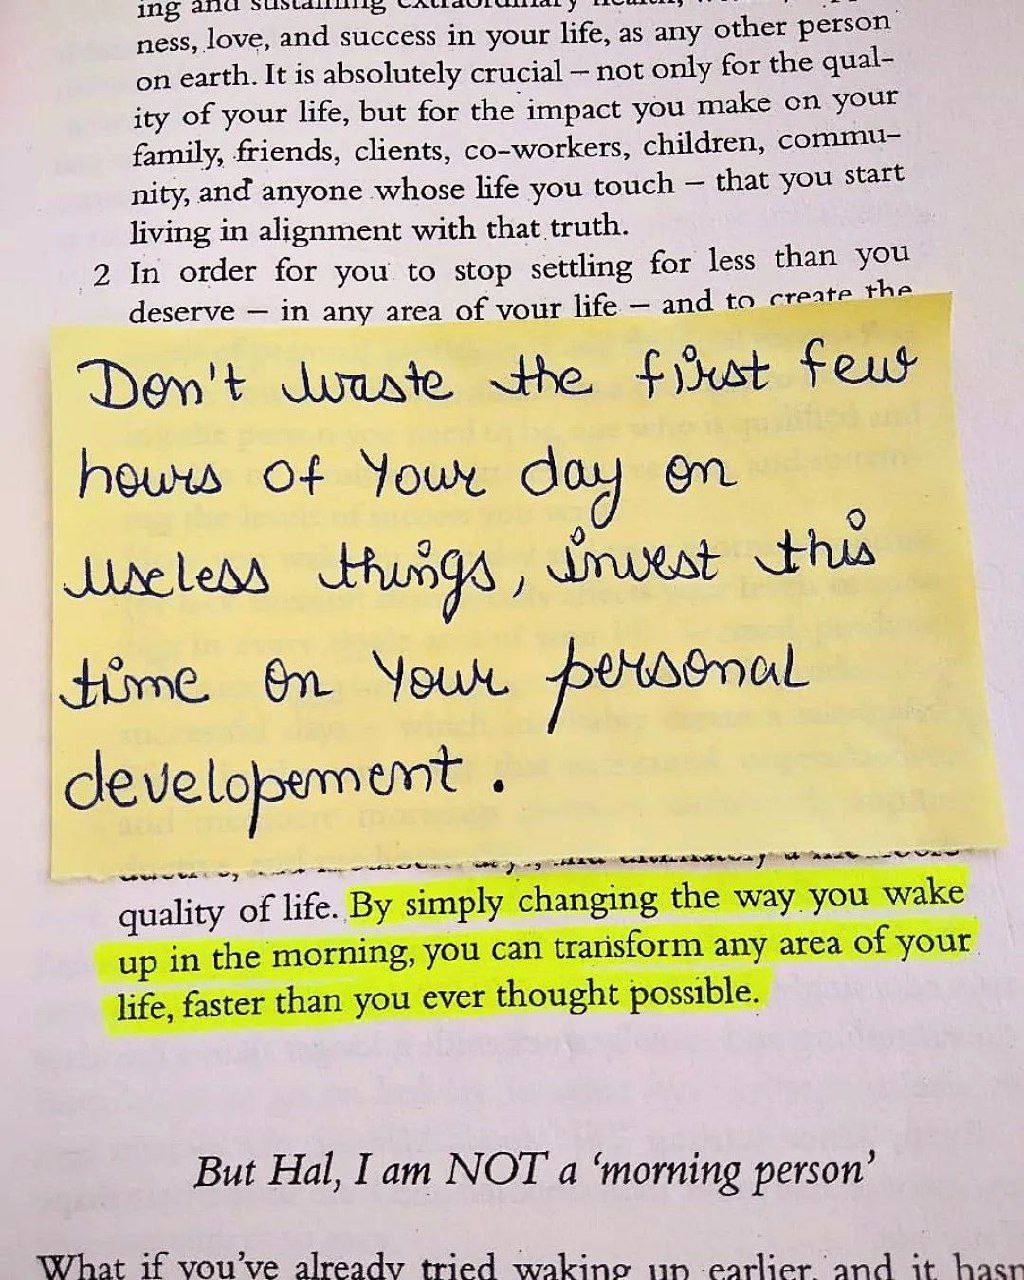 ing and sustaining extraordinary health,
ness, love, and success in your life, as any other person
on earth. It is absolutely crucial – not only for the qual-
ity of your life, but for the impact you make on your
family, friends, clients, co-workers, children, commu-
nity, and anyone whose life you touch – that you start
living in alignment with that truth.
2 In order for you to stop settling for less than you
deserve – in any area of your life – and to create the
Don't waste the first few
hours of your day on
useless things, invest this
time on your personal
developement.
quality of life. By simply changing the way you wake
up in the morning, you can transform any area of your
life, faster than you ever thought possible.
But Hal, I am NOT a ‘morning person’
What if you've already tried waking up earlier, and it hasn